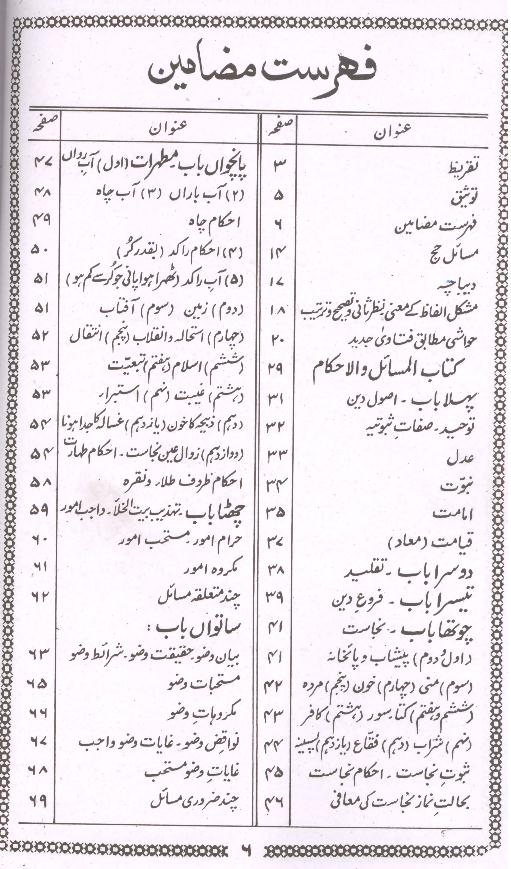 فہرست مضامین
عنوان صفحہ
تقریظ ۳
توثیق ۵
فہرست مضامین ۶
مسائل حج ۱۴
دیباچہ ۱۷
مشکل الفاظ کے معنی نظر ثانی و تصحیح و ترتیب ۱۸
حواشی مطابق فتاویٰ جدید ۲۰
کتاب المسائل والاحکام ۲۹
پہلا باب ۔ اصول دین ۳۱
توحید ۔ صفاتِ ثبوتیہ ۳۲
عدل ۳۳
نبوّت ۳۴
امامت ۳۵
قیامت (معاد) ۳۷
دوسرا باب ۔ تقلید ۳۸
تیسرا باب ۔ فروع دین ۳۹
چوتھا باب ۔ نجاست ۴۱
(اول و دوم) پیشاب و پائخانہ ۴۱
(سوم) منی (چہارم) خون (پنجم) مردہ ۴۲
(ششم و ہفتم) کتا سور (ہشتم) کافر ۴۳
(نہم) شراب (دہم) فقاع (یازدہم) پسینہ ۴۴
ثبوتِ نجاست ۔ احکام نجاست ۴۵
بحالتِ نماز نجاست کی معافی ۴۶
عنوان صفحہ
پانچواں باب ۔ مطہرات (اول) آب رواں ۴۷
(۲) آب باراں (۳) آب چاہ ۴۸
احکام چاہ ۴۹
(۴) احکام راکد (بقدر کُر) ۵۰
(۵) آب راکد (ٹھرا ہوا پانی جو کُر سے کم ہو) ۵۱
(دوم) زمین (سوم) آفتاب ۵۱
(چہارم) استحالہ و انقلاب (پنجم) انتقال ۵۲
(ششم) اسلام (ہفتم) تبعیّت ۵۳
(ہشتم) غیبت (نہم) استبراء ۵۳
(دہم) ذبیحہ کا خون (یازدہم) غسالہ کا جدا ہونا ۵۴
(دوازدہم) زوال عین نجاست ۔ احکام طہارت ۵۴
احکام ظروف طلاء و نقرہ ۵۸
چھٹا باب ۔ تہذیب بیت الخلاء ۔ واجب امور ۵۹
حرام امور ۔ مستحب امور ۶۰
مکروہ امور ۶۱
چند متعلقہ مسائل ۶۲
ساتواں باب :
بیان وضو ۔ حقیقت وضو ۔ شرائط وضو ۶۳
مستحبات وضو ۶۵
مکروہات وضو ۶۶
نواقض وضو ۔ غایات وضو واجب ۶۷
غایاتِ وضو مستحب ۶۸
چند ضروری مسائل ۶۹
۶